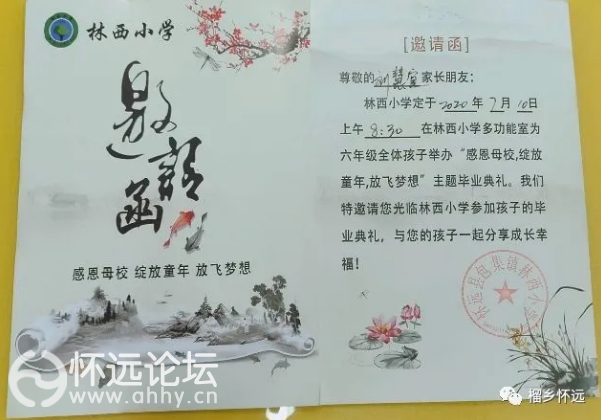 林西小学
邀请函
感恩母校 绽放童年 放飞梦想
[邀请函]
尊敬的刘慧宣家长朋友：
林西小学定于2020年7月10日
上午8:30在林西小学多功能室为
六年级全体孩子举办“感恩母校,绽放
童年,放飞梦想”主题毕业典礼。我们
特邀请您光临林西小学参加孩子的毕
业典礼，与您的孩子一起分享成长幸
福！
怀远县包集镇林西小学
怀远论坛
www.ahhy.cn
榴乡怀远